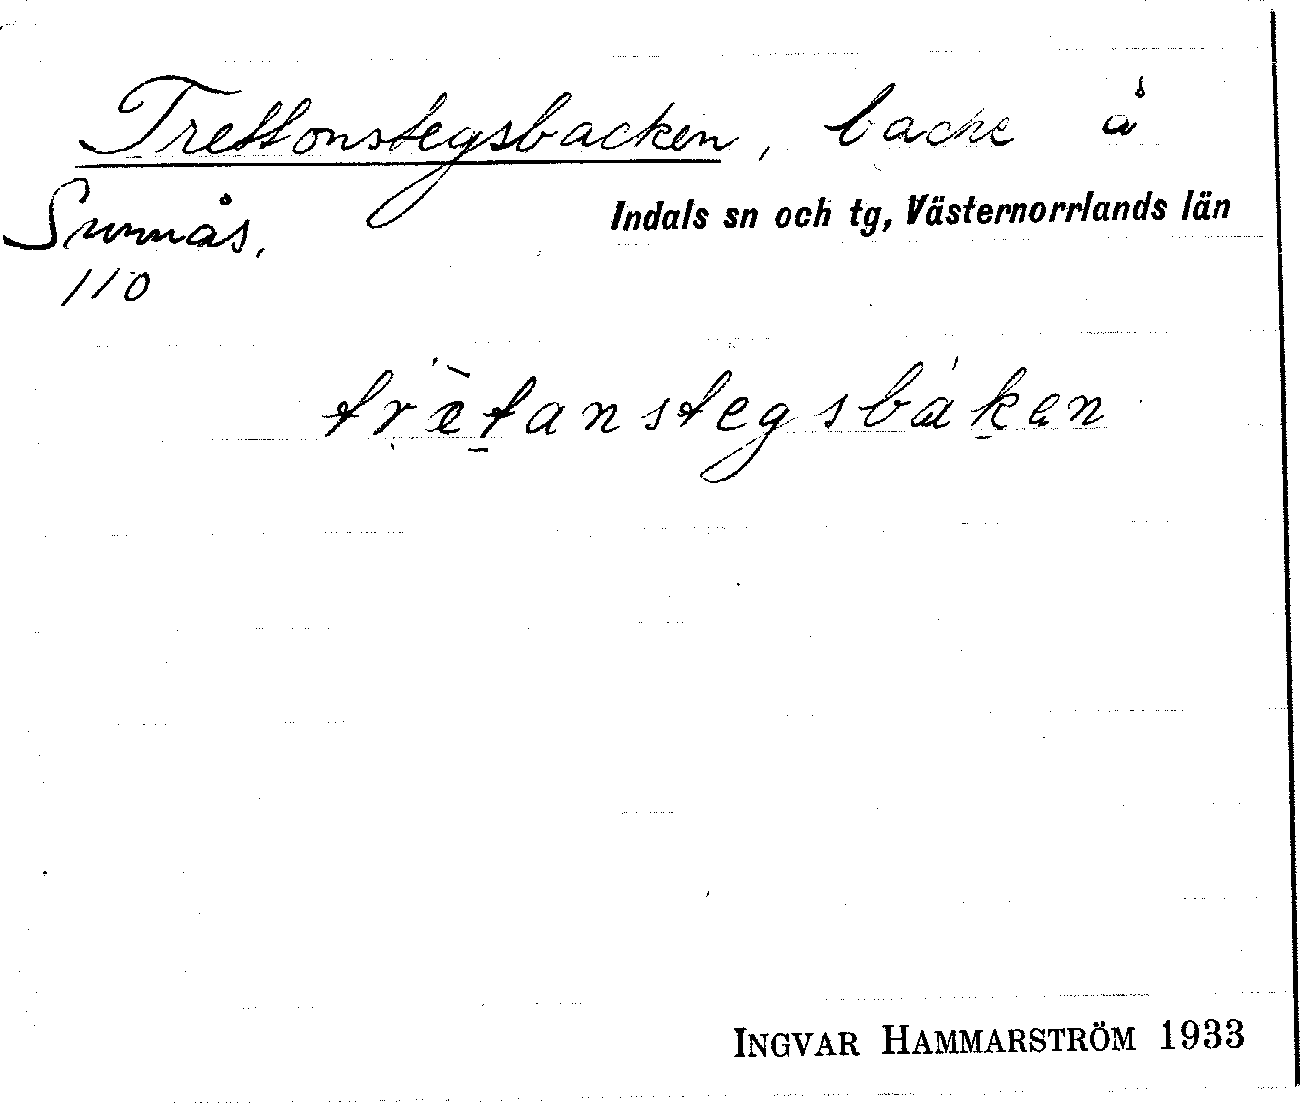 Trettonstegsbacken, backe å
Sunnås,
Indals sn och tg, Västernorrlands län
110
trètanstegsbaken
INGVAR HAMMARSTRÖM 1933